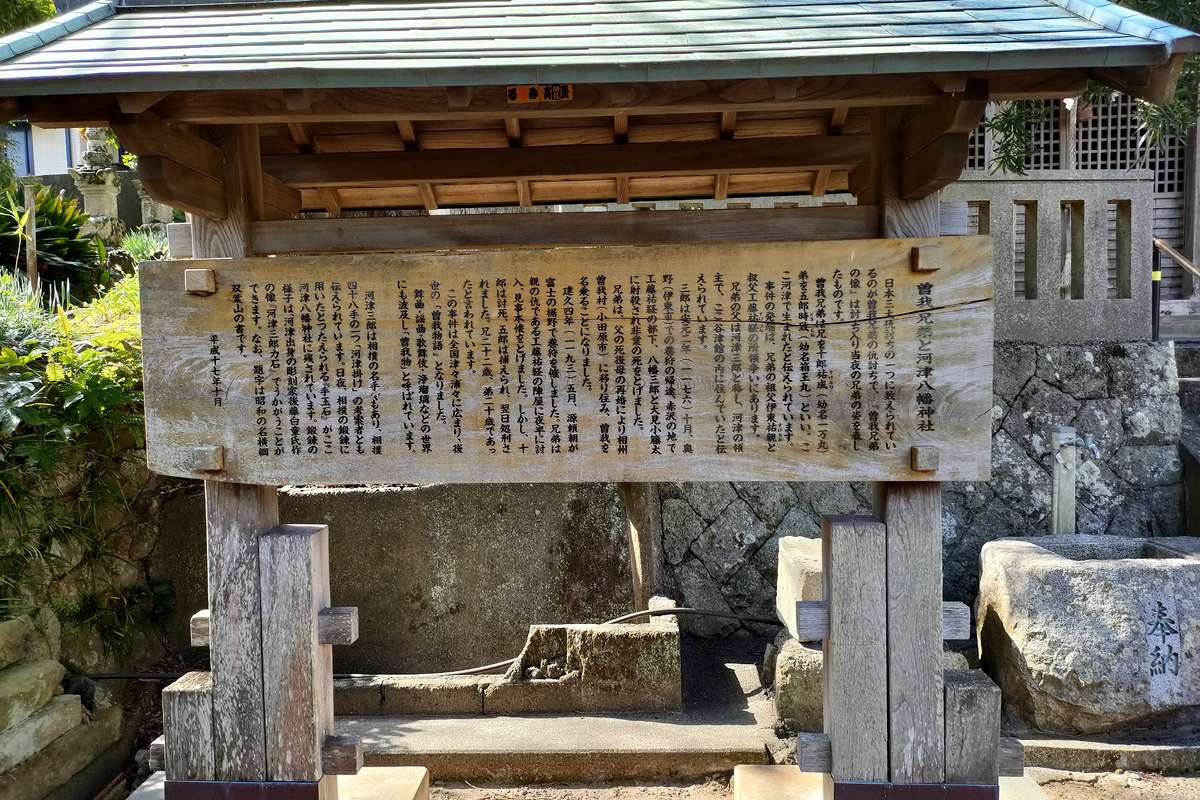 曽我兄弟と河津八幡神社
日本三大仇討ちの一つに数えられてい
るのが曽我兄弟の仇討ちで、「曽我兄弟
の像」は討ち入り当夜の兄弟の姿を表し
たものです。
曽我兄弟は兄を十郎祐成(幼名一万丸)
弟を五郎時致(幼名箱王丸)といい、こ
こ河津で生まれたと伝えられています。
事件の発端は、兄弟の祖父伊東祐親と
叔父工藤祐経の所領争いにあります。
兄弟の父は河津三郎と称し、河津の領
主で、ここ谷津館の内に住んでいたと伝
えられています。
三郎は安元二年(一一七六)十月、奥
野(伊東市)での巻狩の帰途、赤沢の地で
工藤祐経の部下、八幡三郎と大見小藤太
に射殺され非業の死をとげました。
兄弟は、父の死後母の再婚により相州
曽我村(小田原市)に移り住み、曽我を
名乗ることになりました。
建久四年(一一九三)五月、源頼朝が
富士の裾野で巻狩を催しました。兄弟は
親の仇である工藤祐経の陣屋に夜半に討
入、見事本懐をとげました。しかし、十
郎は討死、五郎は捕えられ、翌日処刑さ
れました。兄二十二歳、弟二十歳であっ
たと言われています。
この事件は全国津々浦々に広まり、後
世の「曽我物語」となりました。
舞曲・謡曲・歌舞伎・浄瑠璃などの世界
にも波及し「曽我物」と呼ばれています。
河津三郎は相撲の名手でもあり、相撲
四十八手の一つ「河津掛け」の考案者とも
伝えられています。日夜、相撲の鍛錬に
用いたとつたえられる「手玉石」がここ
河津八幡神社に残されています。鍛錬の
様子は、河津出身の彫刻家後藤白童氏作
の像「河津三郎力石」でうかがうことが
できます。なお、題字は昭和の名横綱
双葉山の書です。
平成十七年十月
奉納